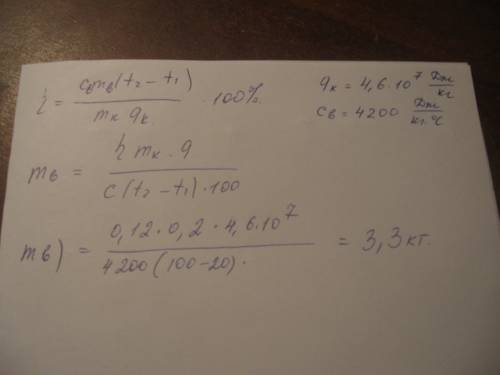 η = cвmв(t₂ − t₁) / mк qк · 100%.
qк = 4,6·10⁷ Дж/кг
cв = 4200 Дж/кг·°С
mв = η mк · q / c(t₂ − t₁)·100
mв) = 0,12·0,2·4,6·10⁷ / 4200(100−20)· = 3,3 кг.